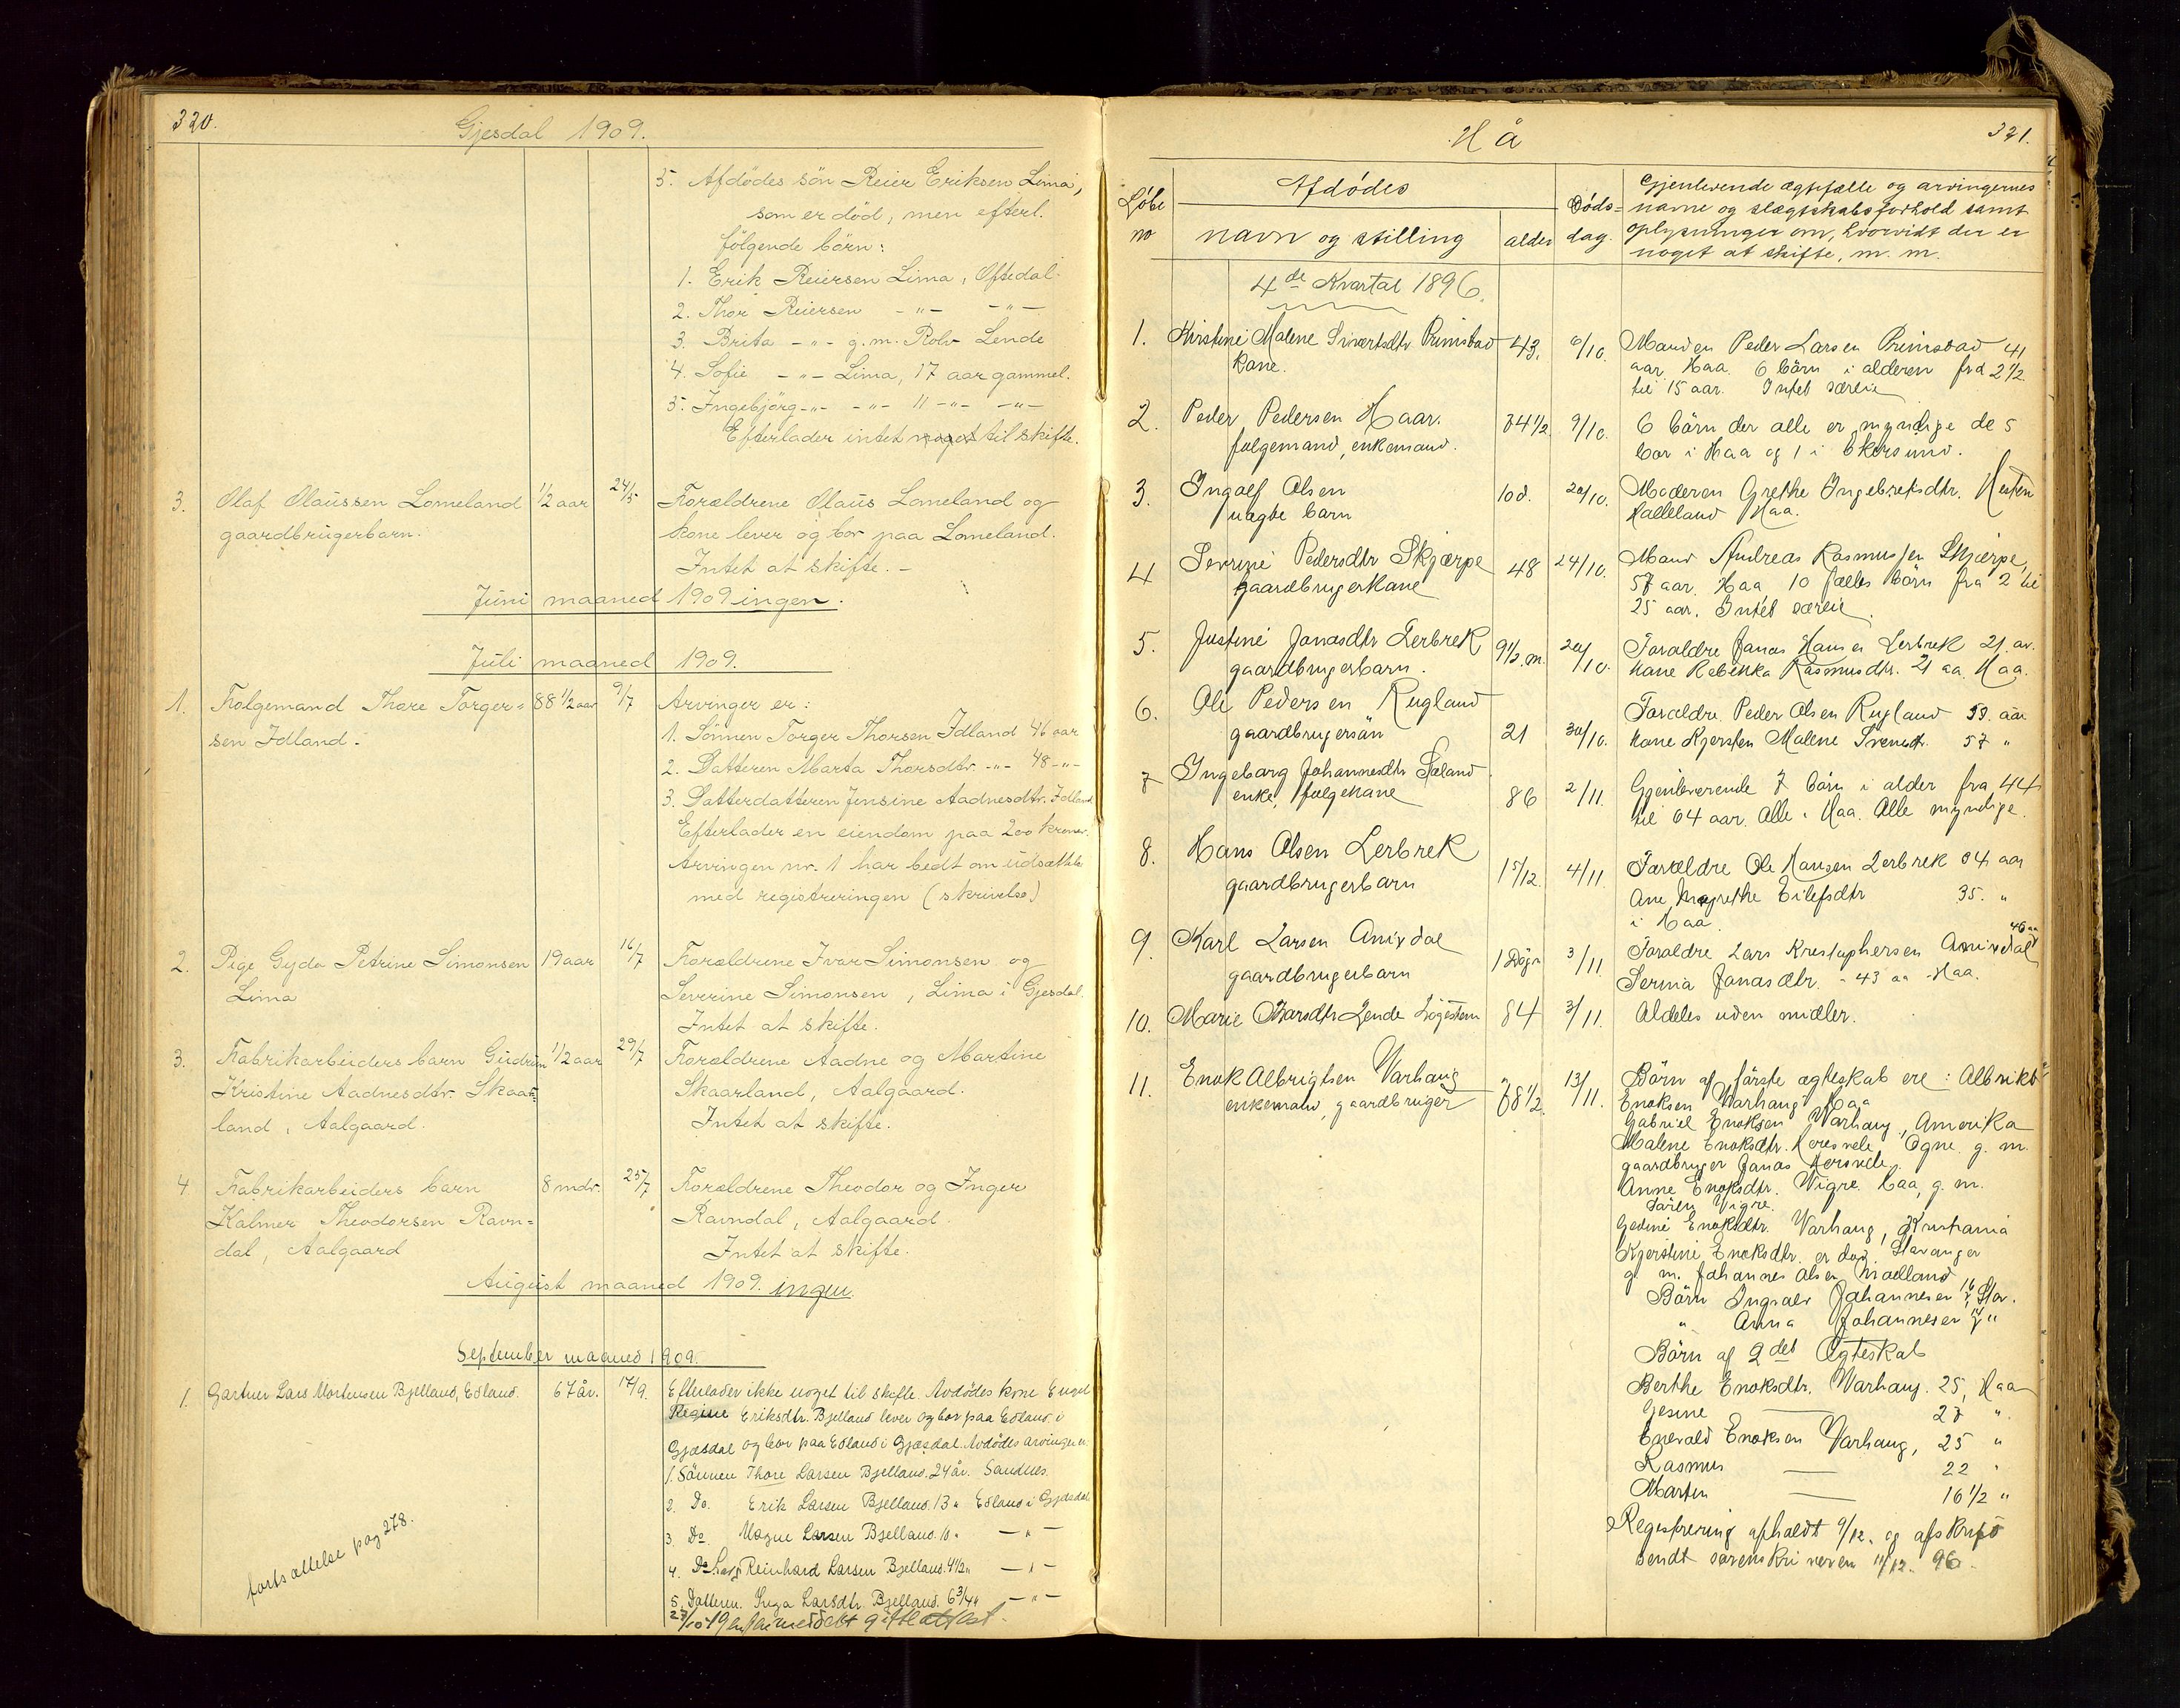 320.
Gjesdal 1909.
5. Afdödes sön Reier Eriksen Lima,
som er död, men efterl.
følgende börn:
1. Erik Reiersen Lima, Oftedal
2. Thor Reiersen -"- -"-
3. Brita -"- g.m. Rolv Lende
4. Sofie -"- Lima, 17 aar gammel.
5. Ingebjörg -"- -"- 11 -"- -"-
Efterlader intet noget til skifte.
3. Olaf Olaussen Lomeland 1/2 aar 24/5 Forældrene Olaus Lomeland og
gaardbrugerbarn. kone lever og bor paa Lomeland.
Intet at skifte. -
Juni maaned 1909 ingen.
Juli maaned 1909.
1. Folgemand Thore Torger= 88 1/2 aar 9/7 Arvinger er:
sen Idland. 1. Sönnen Torger Thorsen Idland 46 aar
2. Datteren Marta Thorsdtr. -"- 48 -"-
3. Datterdatteren Jensine Aadnesdtr. Idland
Efterlader en eiendom paa 200 kroner.
Arvingen nr. 1 har bedt om udsættelse
med registreringen (skrivelse)
2. Pige Gyda Petrine Simonsen 19 aar 16/7 Forældrene Ivar Simonsen og
Lima Severine Simonsen, Lima i Gjesdal.
Intet at skifte.
3. Fabrikarbeiders barn Gudrun 1/2 aar 29/7 Forældrene Aadne og Martine
Kristine Aadnesdtr. Skaar= Skaarland, Aalgaard.
land, Aalgaard. Intet at skifte.
4 Fabrikarbeiders barn 8 mdr. 25/7 Forældrene Theodor og Inger
Kalmer Theodorsen Ravn= Ravndal, Aalgaard.
dal, Aalgaard Intet at skifte.
August maaned 1909. ingen.
September maaned 1909.
1. Gartner Lars Mortensen Bjelland, Edland. 67 år. 17/9. Efterlader ikke noget til skifte. Avdödes kone Engel
Regine Eriksdtr. Bjelland lever og bor paa Edland i
Gjæsdal og bor paa Edland i Gjæsdal. Avdödes arvinger er.
1. Sönnen Thore Larsen Bjelland. 24 år. Sandnes.
2. Do. Erik Larsen Bjelland. 13 " Edland i Gjesdal
3. Do Magne Larsen Bjelland. 10. - " -
4. Do Reinhard Larsen Bjelland. 4 1/2 " - " -
5. Datteren. Inga Larsdtr. Bjelland. 6 3/4 " - " -
fortsættelse pag 278.
Hå
321.
Løbe no
Afdödes
navn og stilling
alder
Döds=
dag.
Gjenlevende ægtefælle og arvingernes
navne og slægtskabsforhold samt
oplysninger om, hvorvidt der er
noget at skifte, m. m.
4de Kvartal 1896.
1. Kirstine Malene Sivertsdtr Primstad 43. 6/10. Manden Peder Larsen Primstad 41
kone. aar Haa. 6 börn i alderen fra 2 1/2
til 15 aar. Intet særeie
2. Peder Pedersen Haar. 84 1/2. 9/10. 6 börn der alle er myndige de 5
folgemand, enkemand. bor i Haa og 1 i Ekersund.
3. Ingolf Olsen 10 d. 20/10. Moderen Grethe Ingebretsdtr.
uægte barn Haa.
4 Serine Pedersdtr Skjærpe 48 24/10. Mand Andreas Rasmussen Skjerpe,
gaardbrugerkane 57 aar. Haa 10 fælles börn fra 2 til
25 aar. Intet særeie.
5. Justine Janasdtr Lerbrek 9 1/2 m. 20/10. Foraldre Janas Hansen Lerbrek 21 aar.
gaardbrugerbarn. Kane Rebekka Rasmusdtr. 21 aa Haa.
6. Ole Pedersen Rugland Foraldre Peder Olsen Rugland 59. aar
gaardbrugersön 21 30/10. Kane Kjersten Malene Svensdtr. 57 "
7 Ingeborg Johannesdtr Sæland 86 2/11. Gjenlevende 7 börn i alder fra 44
enke, følgekane til 64 aar. Alle i Haa. Alle myndige.
8. Hans Olsen Lerbrek 15/12. 4/11 Foraldre Ole Hansen Lerbrek 34 aar
gaardbrugerbarn Ane Magrethe Eilefsdtr 35. "
i Haa.
9. Karl Larsen Anivdal 1 Dögn 3/11 Foraldre Lars Kristophersen Anivdal 46 aa
gaardbrugerbarn Serina Janasdtr. - 43 aa Haa.
10. Marie Ivarsdtr Lende Lögesten 84 3/11. Aldeles uden midler.
11. Enok Albrigtsen Varhaug 68 1/2. 13/11. Börn af förste ægteskab ere: Albrikt
enkemand, gaardbruger Enoksen Varhaug Haa
Gabriel Enoksen Varhaug, Amerika
Malene Enoksdtr. Hersvele Ogne. g. m.
gaardbruger Janas Hersvele.
Anne Enoksdtr. Vigre. Haa, g. m.
Sören Vigre.
Gedine Enoksdtr. Varhaug, Kristiania
Kjerstine Enoksdtr. er död, Stavanger
g. m. Johannes Olsen Madland
Börn Ingvald Johannesen 16 , Stav.
" Anna Johannesen 14 "
Börn af 2det Ægteskab
Berthe Enoksdtr. Varhaug. 25, Haa
Gesine - 27 ".
Enevald Enoksen Varhaug, 25 "
Rasmus - 22 "
Marten - 16 1/2 "
Registrering afholdt 9/12. og afskrift
sendt sorenskriveren 11/12. 96.